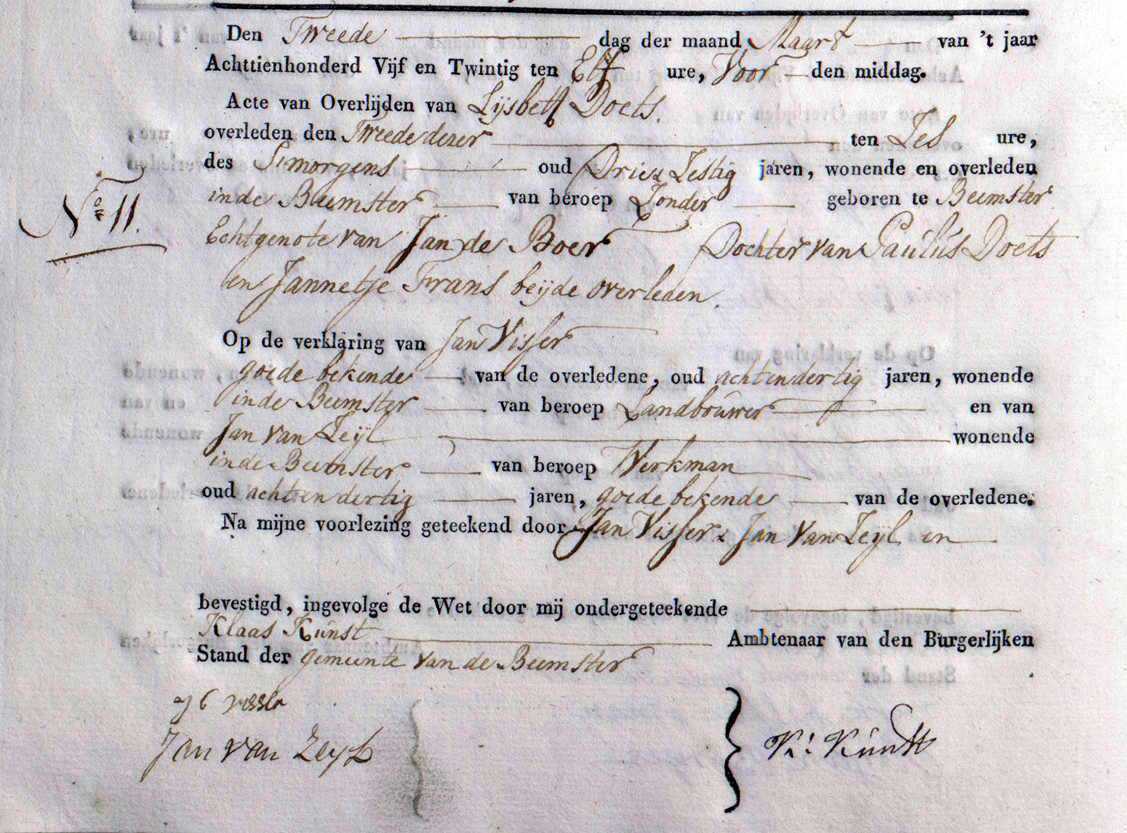 Den Tweede dag der maand Maart van 't jaar
Achttienhonderd Vijf en Twintig ten Elf ure, Voor den middag.
Acte van Overlijden van Lijsbett Doets.
overleden den Tweede dezer ten Zes ure,
des Smorgens oud Drie & Zestig jaren, wonende en overleden
in de Beemster van beroep Zonder geboren te Beemster.
No 11.
Echtgenote van Jan de Boer Dochter van Paulus Doets
en Jannetje Frans beijde overleden.
Op de verklaring van Jan Visser
goede bekende van de overledene, oud achtendertig jaren, wonende
in de Beemster van beroep Landbouwer en van
Jan van Zeijl wonende
in de Beemster van beroep Werkman
oud achtendertig jaren, goede bekende van de overledene.
Na mijne voorlezing geteekend door Jan Visser & Jan Van Zeijl en
bevestigd, ingevolge de Wet door mij ondergeteekende
Klaas Kunst Ambtenaar van den Burgerlijken
Stand der gemeente van de Beemster
visser
Jan van Zeijl
Ks. Kunst